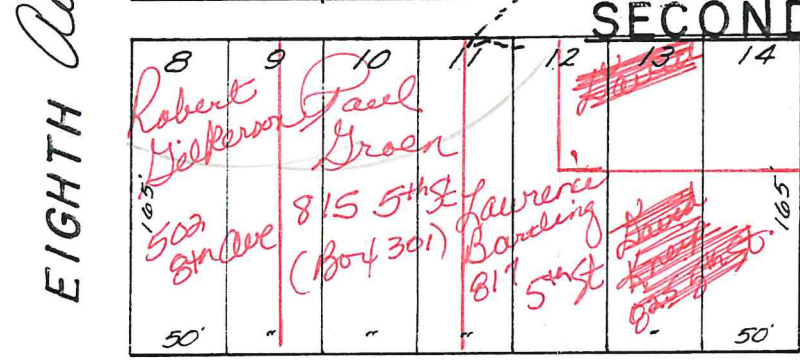 SECOND
EIGTH Au
8 9 10 11 12 13 14
Robert
Gilkerson
502
8th Ave
Paul
Groen
815 5th St
(Box 301)
Lawrence
Bartling
817
5th St
David
825 5th St.
165'
165'
50' " " " " 50'